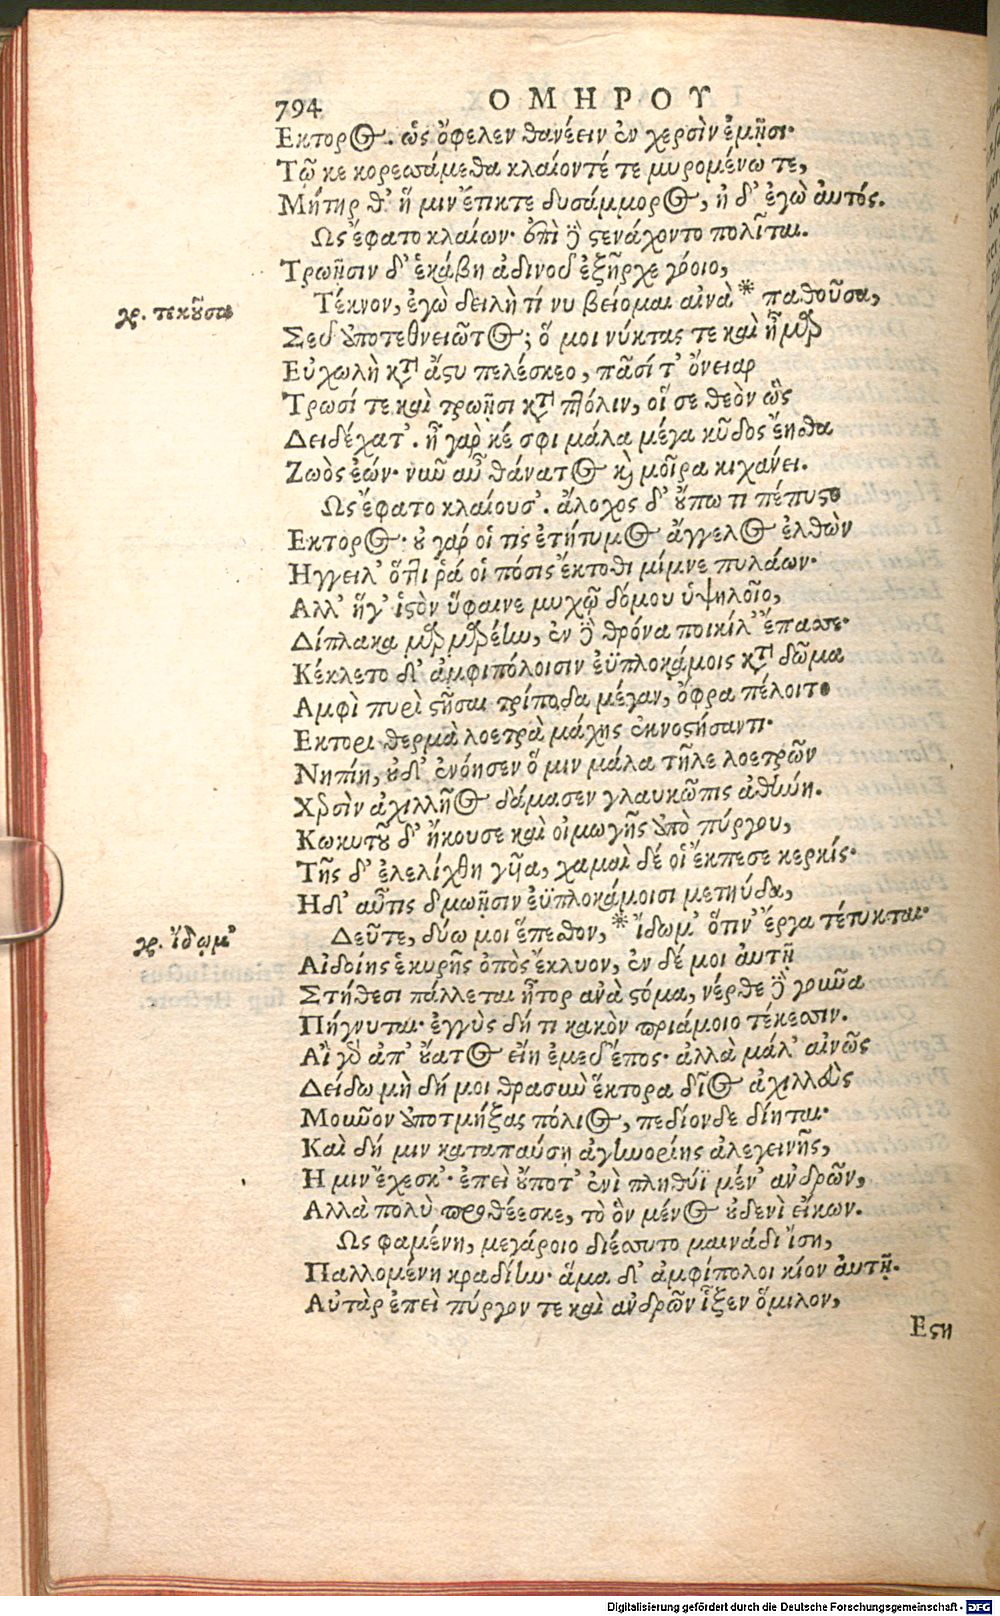 794 ΟΜΗΡΟΥ
Εκτορος. ὡς ὄφελεν θανέειν ἐν χερσὶν ἐμῇσι·
Τῷ κε κορεσσάμεθα κλαίοντέ τε μυρομένω τε,
Μήτηρ θ' ἥ μιν ἔτικτε δυσάμμορος, ἠ δ' ἐγὼ αὐτός.
Ως ἔφατο κλαίων· ἐπὶ δὲ στενάχοντο πολῖται.
Τρωῇσιν δ' ἑκάβη ἁδινοῦ ἐξῆρχε γόοιο,
Τέκνον, ἐγὼ δειλὴ τί νυ βείομαι αἰνὰ * παθοῦσα,
γρ. τεκοῦσα
Σεῦ ἀποτεθνειῶτος; ὅ μοι νύκτας τε καὶ ἦμαρ
Εὐχωλὴ κατὰ ἄστυ πελέσκεο, πᾶσί τ' ὄνειαρ
Τρωσί τε καὶ τρωῇσι κατὰ πτόλιν, οἵ σε θεὸν ὣς
Δειδέχατ'. ἦ γαρ κέ σφι μάλα μέγα κῦδος ἔηθα
Ζωὸς ἐών· νῦν αὖ θάνατος καὶ μοῖρα κιχάνει.
Ως ἔφατο κλαίουσ'. ἄλοχος δ' οὔπω τι πέπυστο
Εκτορος· οὐ γάρ οἵ τις ἐτήτυμος ἄγγελος ἐλθὼν
Ηγγειλ' ὅττι ῥά οἱ πόσις ἔκτοθι μίμνε πυλάων·
Αλλ' ἥγ' ἱστὸν ὕφαινε μυχῷ δόμου ὑψηλοῖο,
Δίπλακα μαρμαρέην, ἐν δὲ θρόνα ποικίλ' ἔπασσε·
Κέκλετο δ' ἀμφιπόλοισιν ἐϋπλοκάμοις κατὰ δῶμα
Αμφὶ πυρὶ στῆσαι τρίποδα μέγαν, ὄφρα πέλοιτο
Εκτορι θερμὰ λοετρὰ μάχης ἐκνοστήσαντι·
Νηπίη, οὐδ' ἐνόησεν ὅ μιν μάλα τῆλε λοετρῶν
Χερσὶν ἀχιλλῆος δάμασεν γλαυκῶπις ἀθήνη.
Κωκυτοῦ δ' ἤκουσε καὶ οἰμωγῆς ἀπὸ πύργου,
Τῆς δ' ἐλελίχθη γυῖα, χαμαὶ δέ οἱ ἔκπεσε κερκίς·
Ηδ' αὖτις δμωῇσιν ἐϋπλοκάμοισι μετηύδα,
Δεῦτε, δύω μοι ἕπεσθον, * ἴδωμ' ὅτιν' ἔργα τέτυκται·
γρ. ἴδωμ'
Αἰδοίης ἑκυρῆς ὀπὸς ἔκλυον, ἐν δέ μοι αὐτῇ
Στήθεσι πάλλεται ἦτορ ἀνὰ στόμα, νέρθε δὲ γοῦνα
Πήγνυται· ἐγγὺς δή τι κακὸν πριάμοιο τέκεσσιν.
Αἲ γὰρ ἀπ' οὔατος εἴη ἐμεῦ ἔπος· ἀλλὰ μάλ' αἰνῶς
Δείδω μὴ δή μοι θρασὺν ἕκτορα δῖος ἀχιλλεὺς
Μοῦνον ἀποτμήξας πόλιος, πεδίονδε δίηται·
Καὶ δή μιν καταπαύσῃ ἀγηνορίης ἀλεγεινῆς,
Η μιν ἔχεσκ'· ἐπεὶ οὔποτ' ἐνὶ πληθύϊ μέν' ἀνδρῶν,
Αλλὰ πολὺ προθέεσκε, τὸ ὃν μένος οὐδενὶ εἴκων.
Ως φαμένη, μεγάροιο διέσσυτο μαινάδι ἴση,
Παλλομένη κραδίην· ἅμα δ' ἀμφίπολοι κίον αὐτῇ.
Αὐτὰρ ἐπεὶ πύργον τε καὶ ἀνδρῶν ἷξεν ὅμιλον,
Εστη
Digitalisierung gefördert durch die Deutsche Forschungsgemeinschaft - DFG